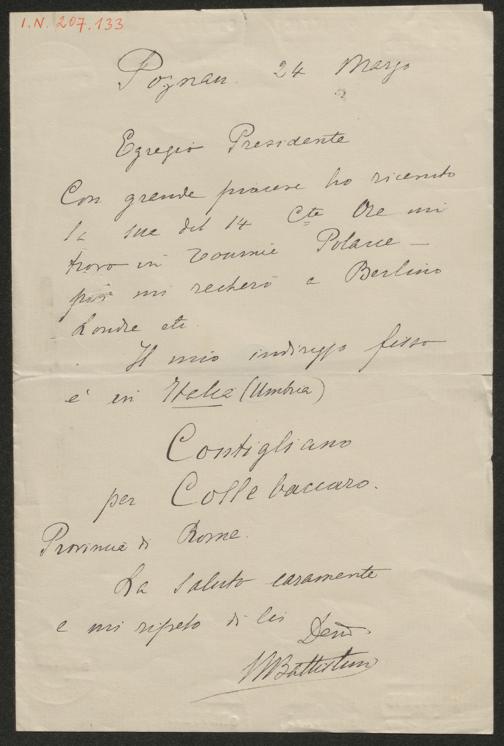 I.N. 207.133
Poznan. 24 Marzo
Egregio Presidente
Con grande piacere ho ricevuto
la sua del 14 Cte Ora mi
trovo in Tournée Polacca —
poi mi recherò a Berlino
Londra etc.
Il mio indirizzo fisso
è in Italia (Umbria)
Contigliano
per Collebaccaro.
Provincia di Roma.
La saluto caramente
e mi ripeto di lei Devo.
MBattistini